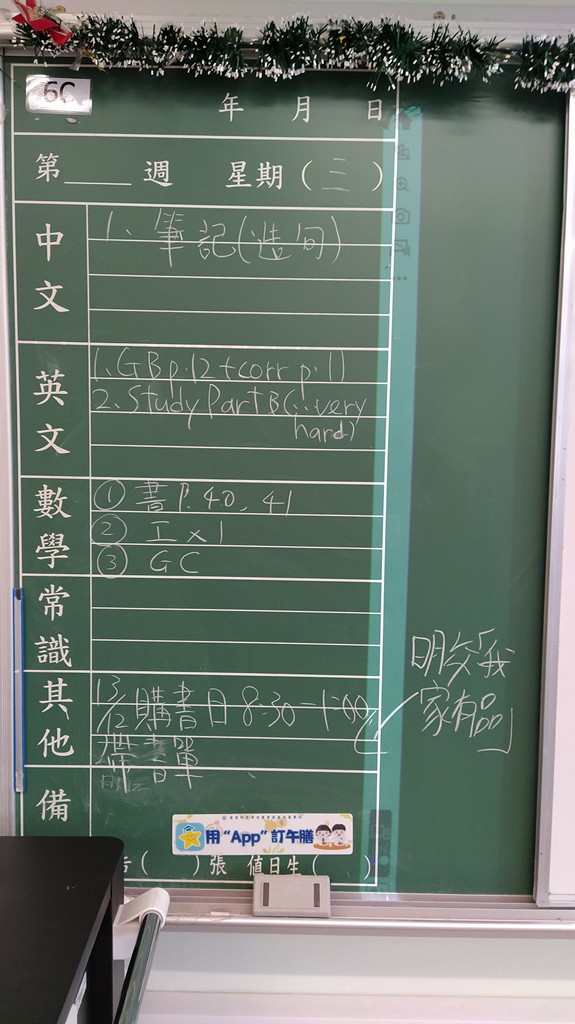 6C
年 月 日
第 週 星期(三)
中文
1、筆記(造句)
英文
1、GB p.12 + corr p.11
2、Study Part B (∵ very
hard)
數學
① 書 P.40, 41
② 工 x 1
③ GC
常識
其他
13/12 購書日 8:30 - 1:00
帶書單
明交「我
家有品」
備
用 "App" 訂午膳
告( )張 值日生( )